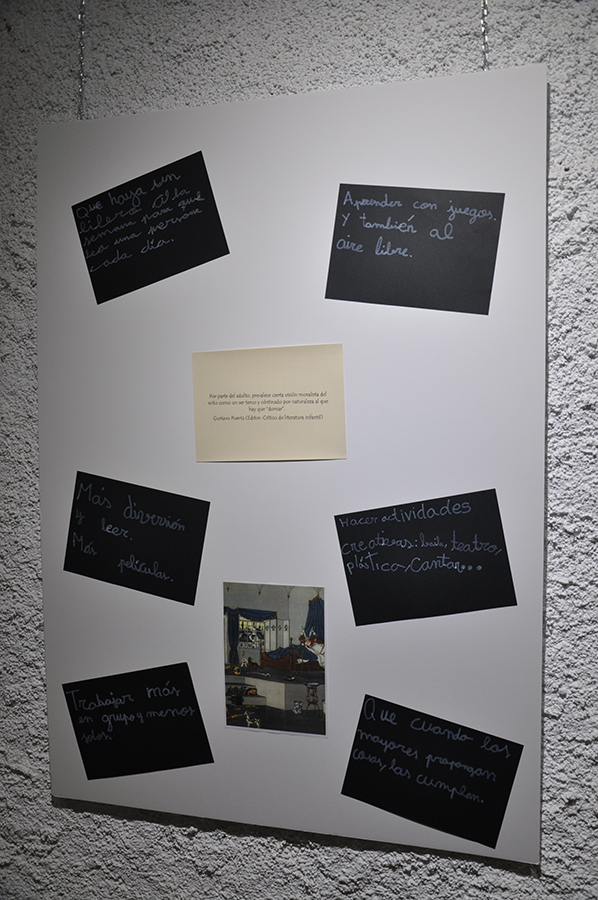 Que haya un
líbero a la
semana para que
sea una persona
cada día.
Aprender con juegos.
Y también al
aire libre.
Por parte del adulto, prevalece cierta visión moralista del
niño como un ser terco y obstinado por naturaleza al que
hay que "domar".
Gustavo Puerta (Editor. Crítico de literatura infantil)
Más diversión
y leer.
Más películas.
Hacer actividades
creativas: baile, teatro,
plástica, cantar...
Trabajar más
en grupo y menos
solos.
Que cuando los
mayores propongan
cosas, las cumplan.